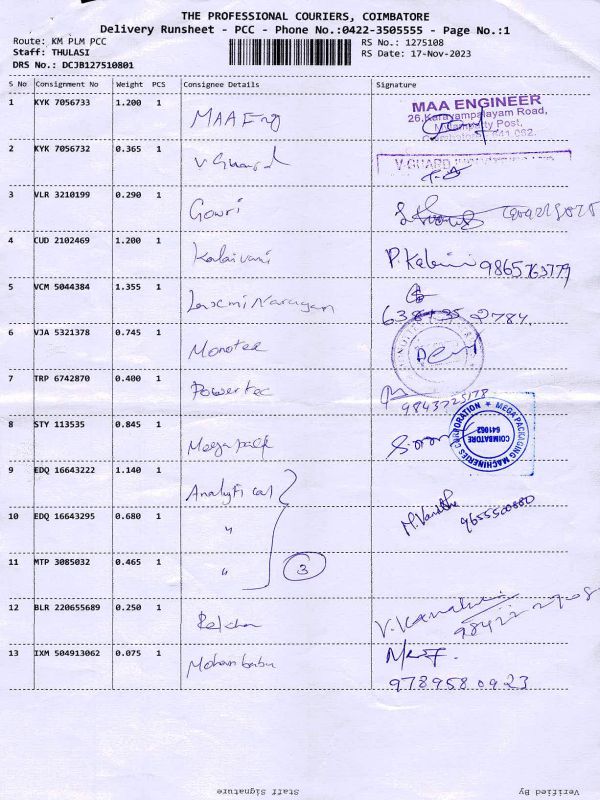 THE PROFESSIONAL COURIERS, COIMBATORE
Delivery Runsheet - PCC - Phone No.:0422-3505555 - Page No.:1
Route: KM PLM PCC
RS No.: 1275108
Staff: THULASI
RS Date: 17-Nov-2023
DRS No.: DCJB127510801
S No Consignment No Weight PCS Consignee Details Signature
1 KYK 7056733 1.200 1 MAA Eng
MAA ENGINEER
26,Karayampalayam Road,
Post,
641 062.
2 KYK 7056732 0.365 1 V Guard
V-GUARD
3 VLR 3210199 0.290 1 Gowri
4 CUD 2102469 1.200 1 Kalaivani P. Kalaivani 9865763779
5 VCM 5044384 1.355 1 Laxmi Narayan
2784
6 VJA 5321378 0.745 1 Monotec
7 TRP 6742870 0.400 1 Powertec
9843725178
8 STY 113535 0.845 1 Mega pack
MEGA PACKAGING MACHINERIES CORPORATION
COIMBATORE
641062
9 EDQ 16643222 1.140 1 Analytical
10 EDQ 16643295 0.680 1 "
9655500880
11 MTP 3085032 0.465 1 " 3
12 BLR 220655689 0.250 1
13 IXM 504913062 0.075 1 Mohan babu
9789580923
Staff Signature Verified By